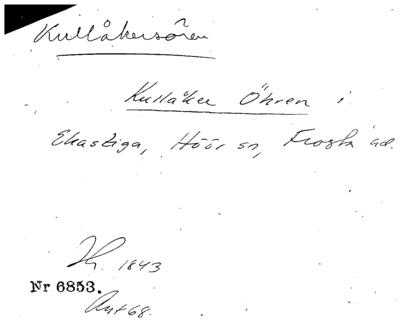 Kullåkersören
Kullåker Öhren i
Ekastiga, Höör sn, Frosta hd.
1843
Nr 6853.
Avt 68.